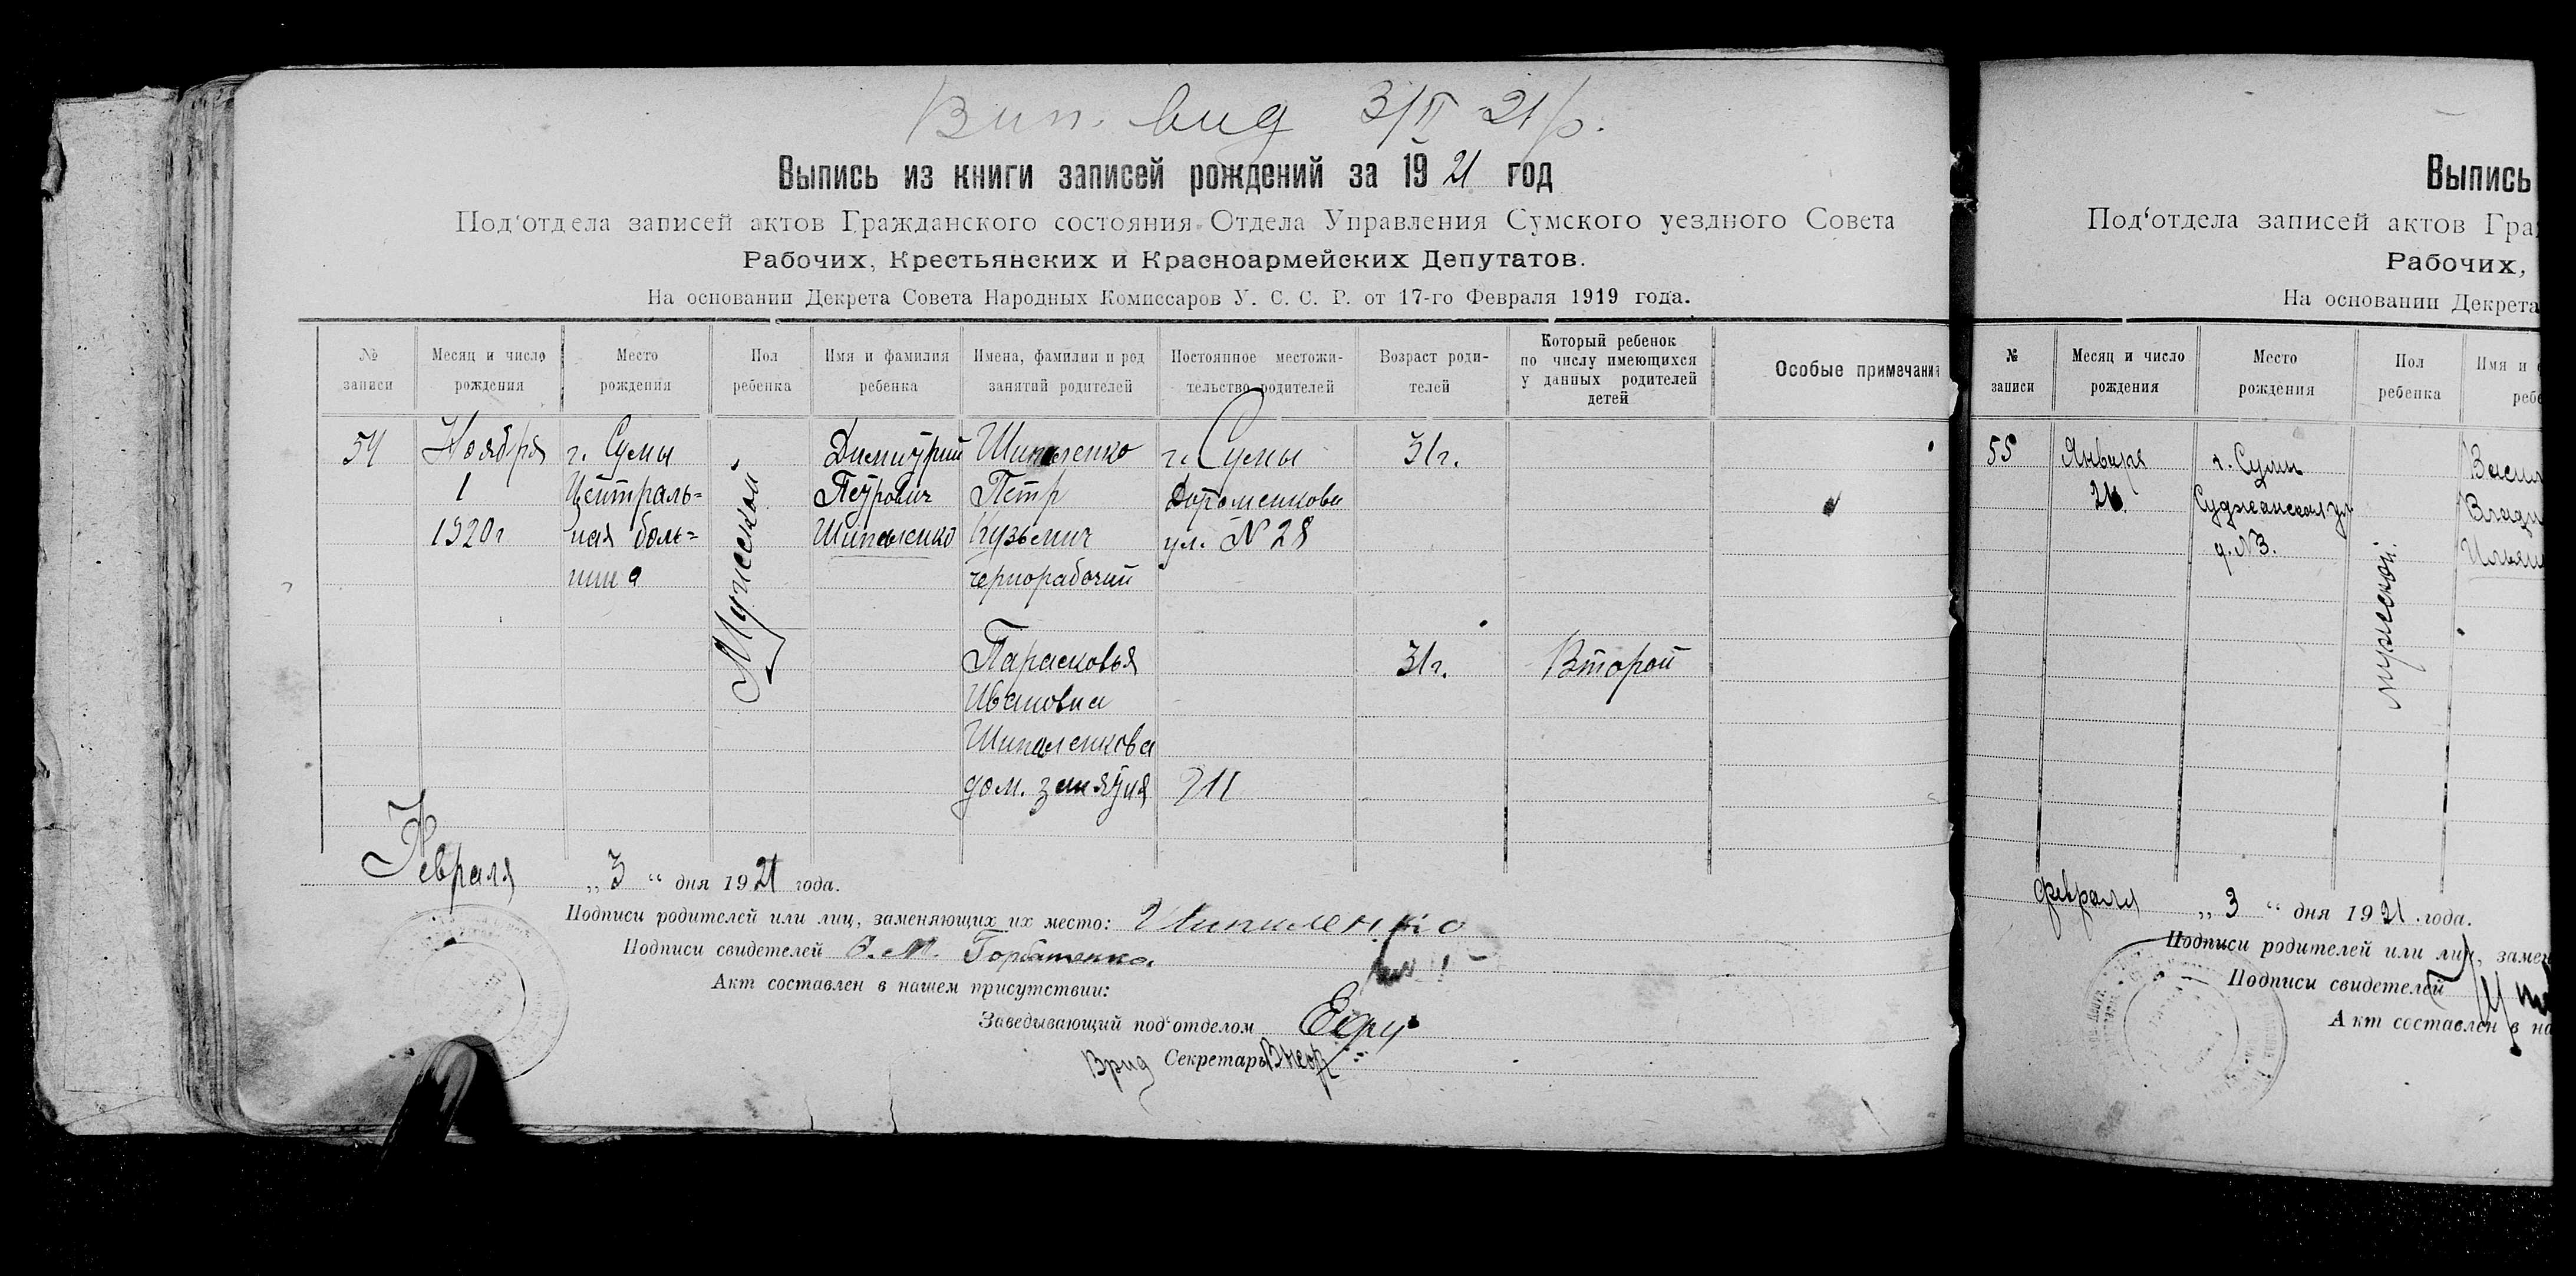 Вип. вид 3/II 21 р.
Выпись из книги записей рождений за 1921 год
Под'отдела записей актов Гражданского состояния Отдела Управления Сумского уездного Совета
Рабочих, Крестьянских и Красноармейских Депутатов.
На основании Декрета Совета Народных Комиссаров У. С. С. Р. от 17-го Февраля 1919 года.
№ записи
Месяц и число рождения
Место рождения
Пол ребенка
Имя и фамилия ребенка
Имена, фамилии и род занятий родителей
Постоянное местожи-тельство родителей
Возраст роди-телей
Который ребенок по числу имеющихся у данных родителей детей
Особые примечания
54 Ноября г. Сумы Димитрий Шипаленко г. Сумы 31 г.
1 Централь= Петрович Петр
1920 г ная боль= Шипаленко Кузьмич ул. № 28
ница чернорабочий
Мужеской
Парасковья 31 г. Второй
Ивановна
Шипаленкова
дом. занятия 911
Февраля „3“ дня 1921 года.
Подписи родителей или лиц, заменяющих их место: Шипиленко
Подписи свидетелей Горбатенко
Акт составлен в нашем присутствии:
Заведывающий под'отделом
Врид Секретарь
Выпись
Под'отдела записей актов Гра
Рабочих,
На основании Декрета
№ записи
Месяц и число рождения
Место рождения
Пол ребенка
Имя и
ребе
55 Января г. Сумы
21. Суджанская ул
д. №3.
мужеской.
февраля „3“ дня 1921 года.
Подписи родителей или лиц, замен
Подписи свидетелей
Акт составлен в на